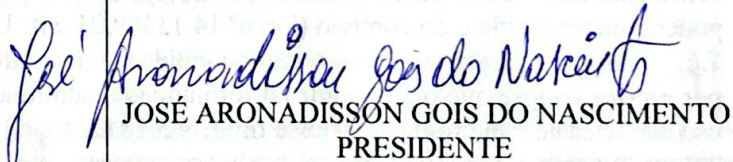 José Aronadisson Gois do Nascimento
JOSÉ ARONADISSON GOIS DO NASCIMENTO
PRESIDENTE